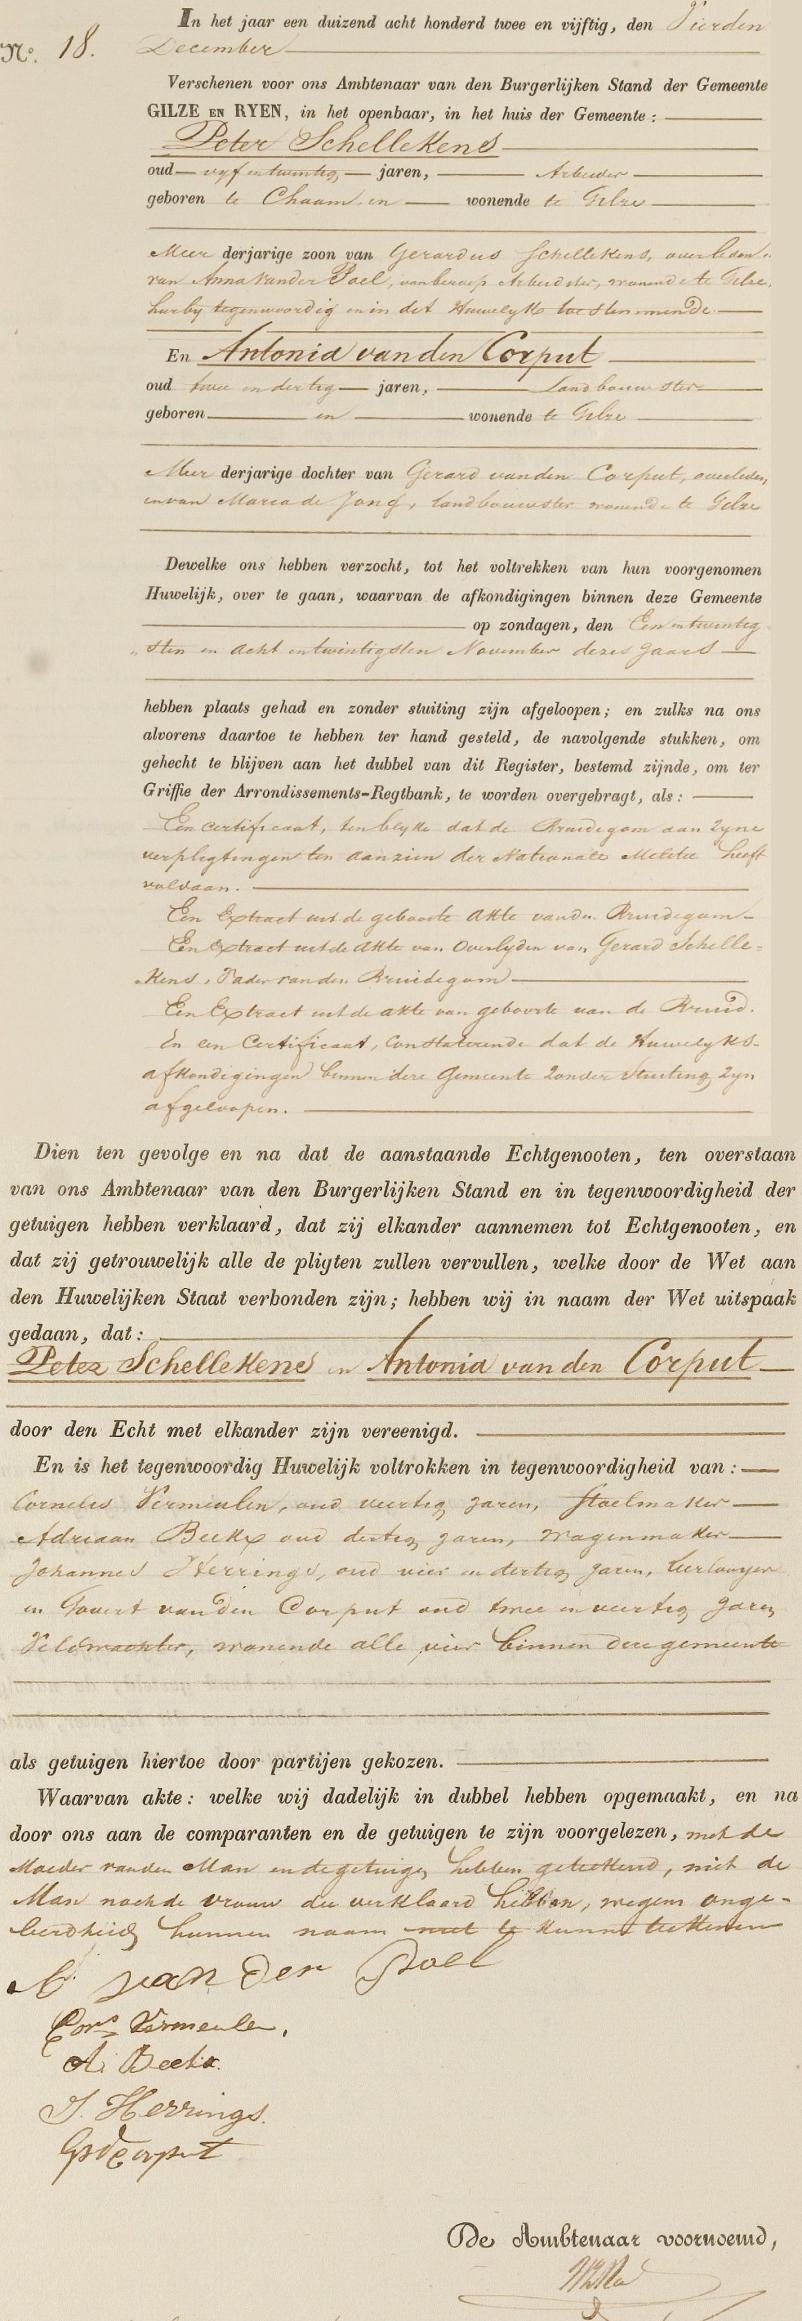 In het jaar een duizend acht honderd twee en vijftig, den Vierden
No. 18.
December
Verschenen voor ons Ambtenaar van den Burgerlijken Stand der Gemeente
GILZE EN RYEN, in het openbaar, in het huis der Gemeente:
Peter Schellekens
oud vyf en twintig jaren, Arbeider
geboren te Chaam en wonende te Gilze
Meer derjarige zoon van Gerardus Schellekens, overleden en
van Anna van der Poel, van beroep Arbeidster, wonende te Gilze,
hierby tegenwoordig en in dit Huwelyk toestemmende
En Antonia van den Corput
oud twee en dertig jaren, Landbouwster
geboren en wonende te Gilze
Meer derjarige dochter van Gerard van den Corput, overleden,
en van Maria de Jong, landbouwster wonende te Gilze
Dewelke ons hebben verzocht, tot het voltrekken van hun voorgenomen
Huwelijk, over te gaan, waarvan de afkondigingen binnen deze Gemeente
op zondagen, den Een en twintig
sten en acht en twintigsten November dezes Jaars
hebben plaats gehad en zonder stuiting zijn afgeloopen; en zulks na ons
alvorens daartoe te hebben ter hand gesteld, de navolgende stukken, om
gehecht te blijven aan het dubbel van dit Register, bestemd zijnde, om ter
Griffie der Arrondissements-Regtbank, te worden overgebragt, als:
Een certificaat, ten blyke dat de Bruidegom aan zyne
verpligtingen ten aanzien der Nationale Militie heeft
voldaan.
Een Extract uit de geboorte Akte van den Bruidegom
Een Extract uit de Akte van Overlyden van Gerard Schelle=
kens, Vader van den Bruidegom
Een Extract uit de akte van geboorte van de Bruid.
En een Certificaat, Constaterende dat de Huwelyks-
afkondigingen binnen deze Gemeente zonder stuiting zyn
afgeloopen.
Dien ten gevolge en na dat de aanstaande Echtgenooten, ten overstaan
van ons Ambtenaar van den Burgerlijken Stand en in tegenwoordigheid der
getuigen hebben verklaard, dat zij elkander aannemen tot Echtgenooten, en
dat zij getrouwelijk alle de pligten zullen vervullen, welke door de Wet aan
den Huwelijken Staat verbonden zijn; hebben wij in naam der Wet uitspaak
gedaan, dat:
Peter Schellekens en Antonia van den Corput
door den Echt met elkander zijn vereenigd.
En is het tegenwoordig Huwelijk voltrokken in tegenwoordigheid van:
Cornelis Vermeulen, oud veertig jaren, stoelmaker
Adriaan Beekx oud dertig jaren, wagenmaker
Johannes Herrings, oud vier en dertig jaren, leerlooyer
en Govert van den Corput oud twee en veertig jaren
Veldwachter, wonende alle vier binnen deze gemeente
als getuigen hiertoe door partijen gekozen.
Waarvan akte: welke wij dadelijk in dubbel hebben opgemaakt, en na
door ons aan de comparanten en de getuigen te zijn voorgelezen, met de
Moeder van den Man en de getuigen hebben geteekend, niet de
Man noch de vrouw die verklaard hebben, wegens onge-
leerdheid hunnen naam niet te kunnen teekenen
A van der Poel
Cors Vermeulen,
A. Beekx.
J. Herrings.
G v d Corput
De Ambtenaar voornoemd,